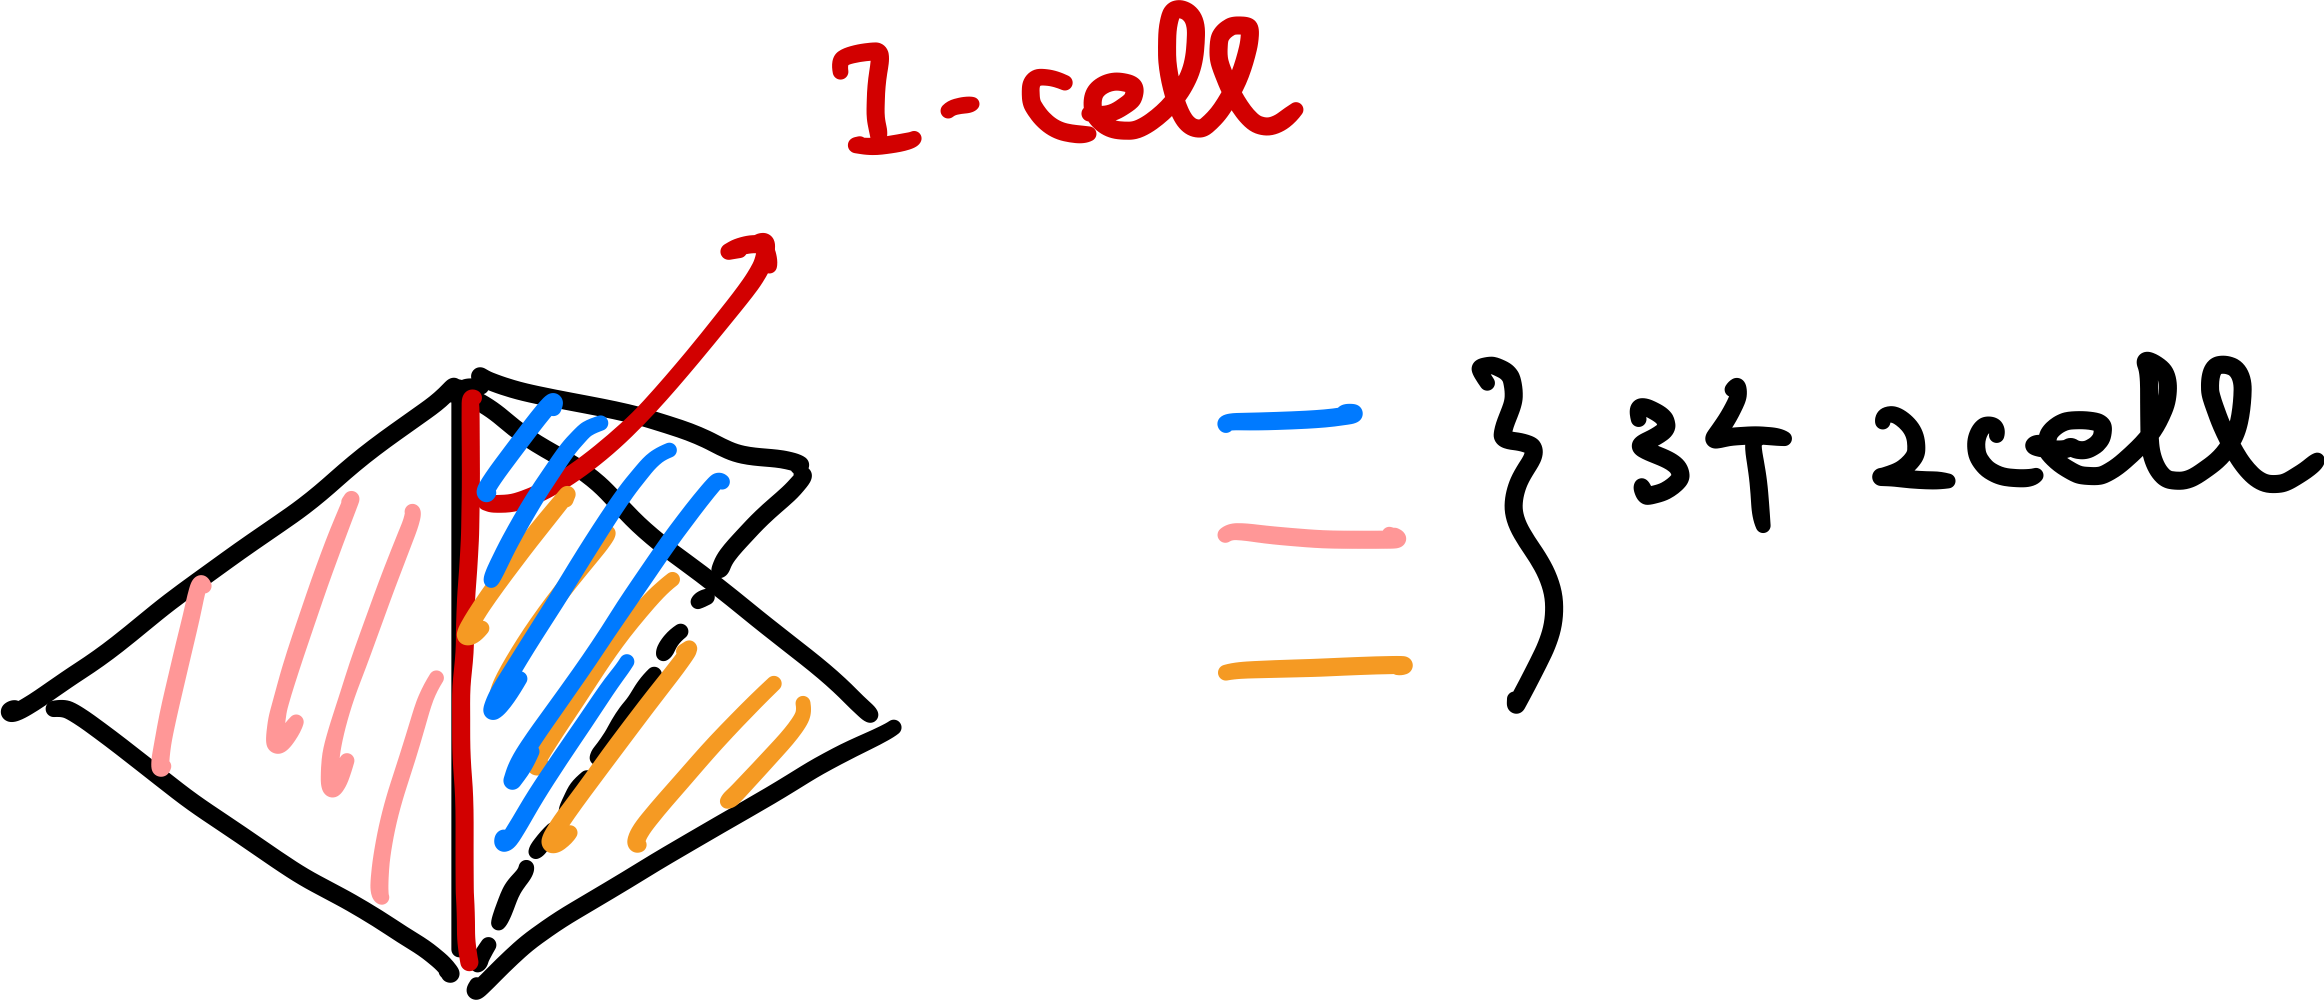 1-cell
3个 2cell